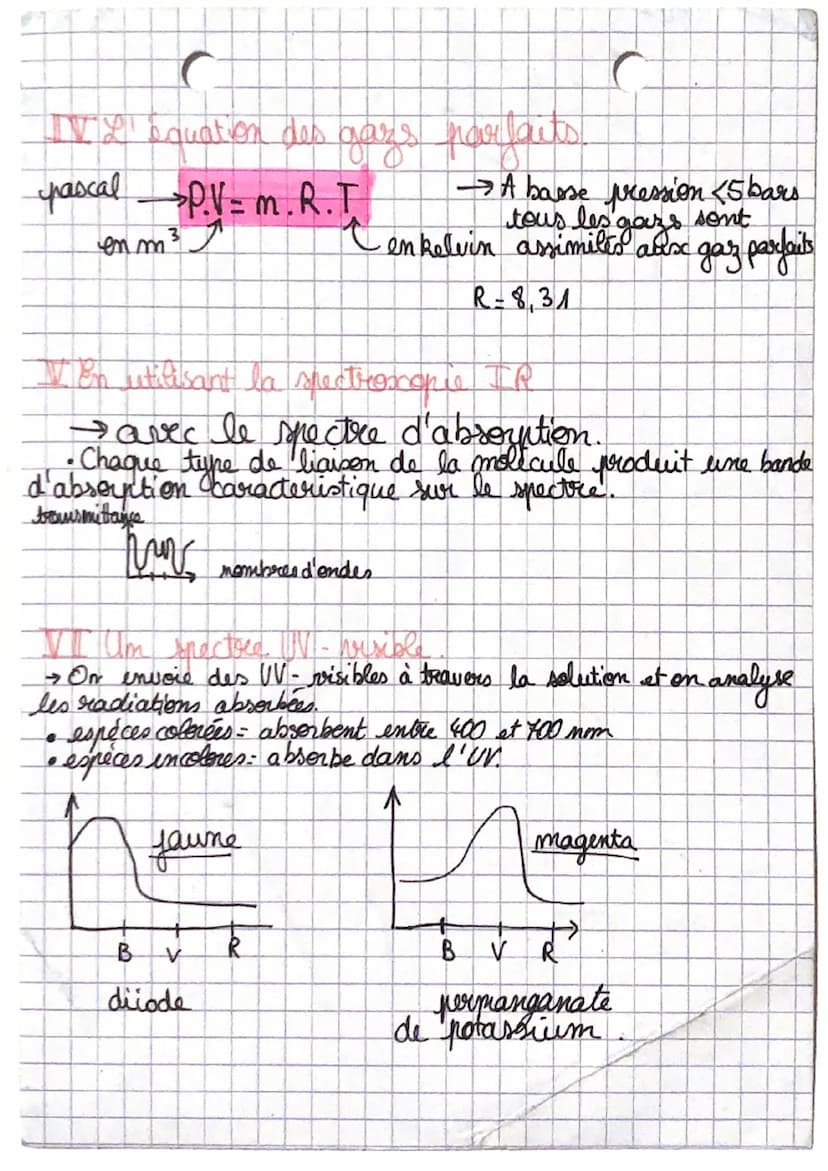 IV L'équation des gazs parfaits.
pascal → P.V = n.R.T
en m³
en kelvin
→ A basse pression <5 bars
tous les gazs sont
assimilés aux gaz parfaits
R = 8,31
V En utilisant la spectroscopie IR
→ avec le spectre d'absorption.
• Chaque type de liaison de la molécule produit une bande
d'absorption caracteristique sur le spectre.
transmittance
nombres d'ondes
VI Un spectre UV - visible.
→ On envoie des UV - visibles à travers la solution et on analyse
les radiations absorbées.
• espèces colorées = absorbent entre 400 et 700 nm
• espèces incolores = absorbe dans l'UV.
jaune
B V R
diiode
magenta
B V R
permanganate
de potassium.